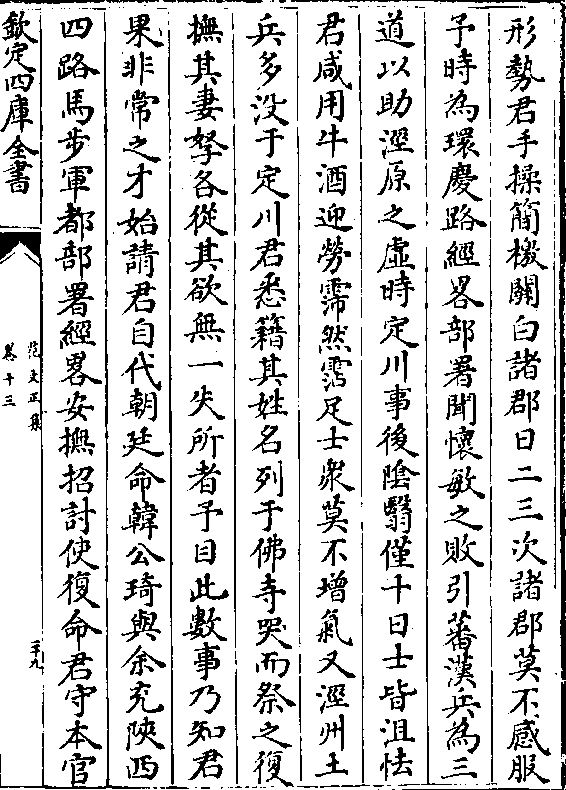 形勢君手操簡檄關白諸郡日二三次諸郡莫不感服
予時為環慶路經畧部署聞懷敏之敗引蕃漢兵為三
道以助涇原之虛時定川事後陰翳僅十日士皆沮怯
君咸用牛酒迎勞霈然霑足士衆莫不增氣又涇州土
兵多沒于定川君悉籍其姓名列于佛寺哭而祭之復
撫其妻孥各從其欲無一失所者予目此數事乃知君
果非常之才始請君自代朝廷命韓公琦與余充陝西
四路馬步軍都部署經畧安撫招討使復命君守本官
欽定四庫全書
范文正集
卷十三
二十九